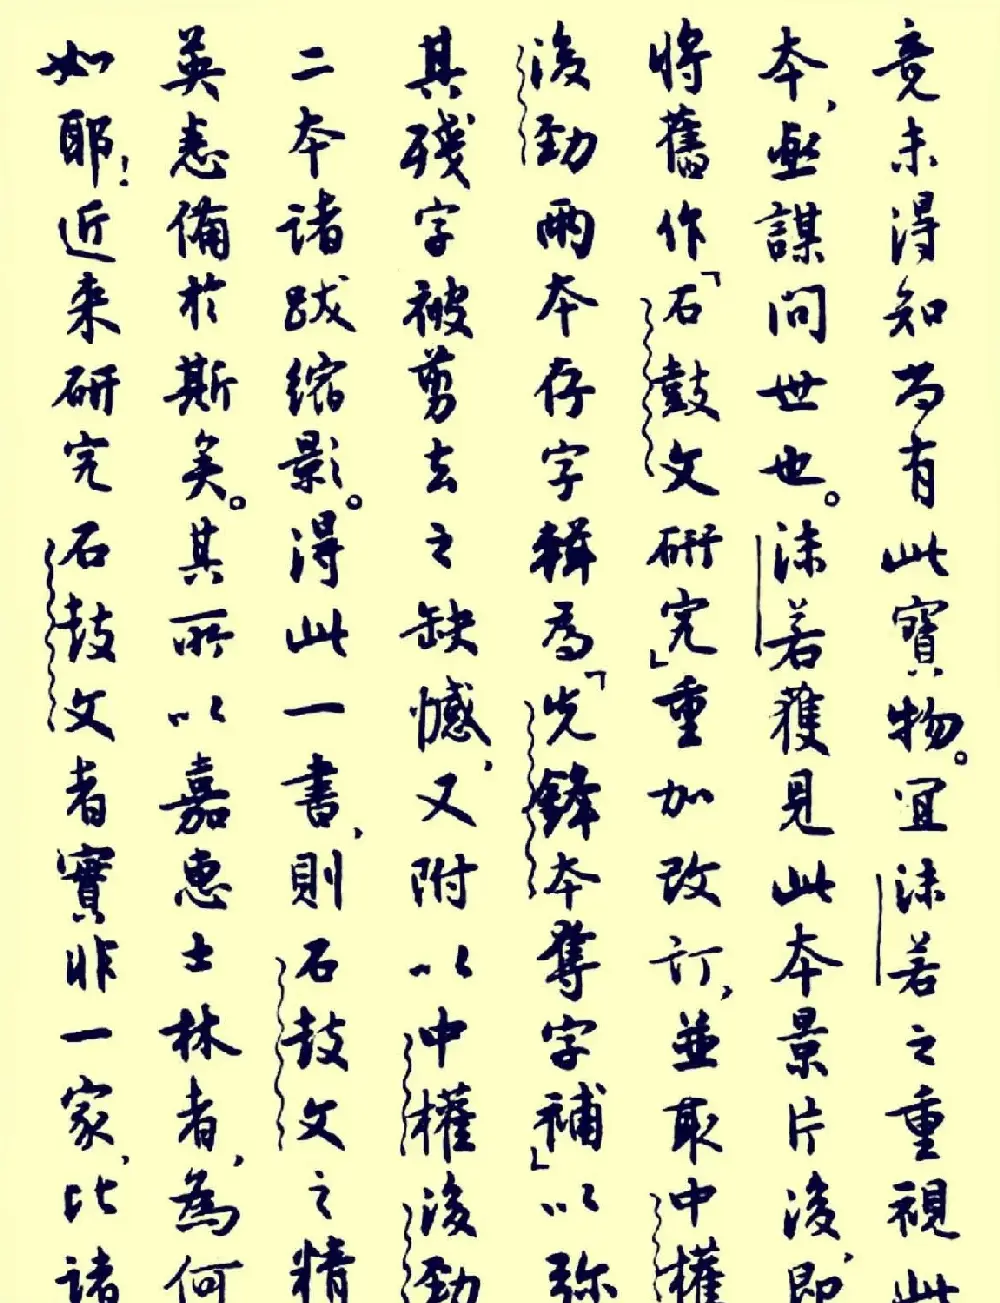 竟未得知为有此寶物。宜沫若之重視此
本，亟謀问世也。沫若獲見此本景片後，即
將舊作「石鼓文研究」重加改订，並取中權
後勁兩本存字輯為「先鋒本奪字補」以弥
其殘字被剪去之缺憾，又附以中權後勁
二本诸跋缩影。得此一書，則石鼓文之精
英悉備於斯矣。其所以嘉惠士林者，為何
如耶！近来研究石鼓文者實非一家，比诸